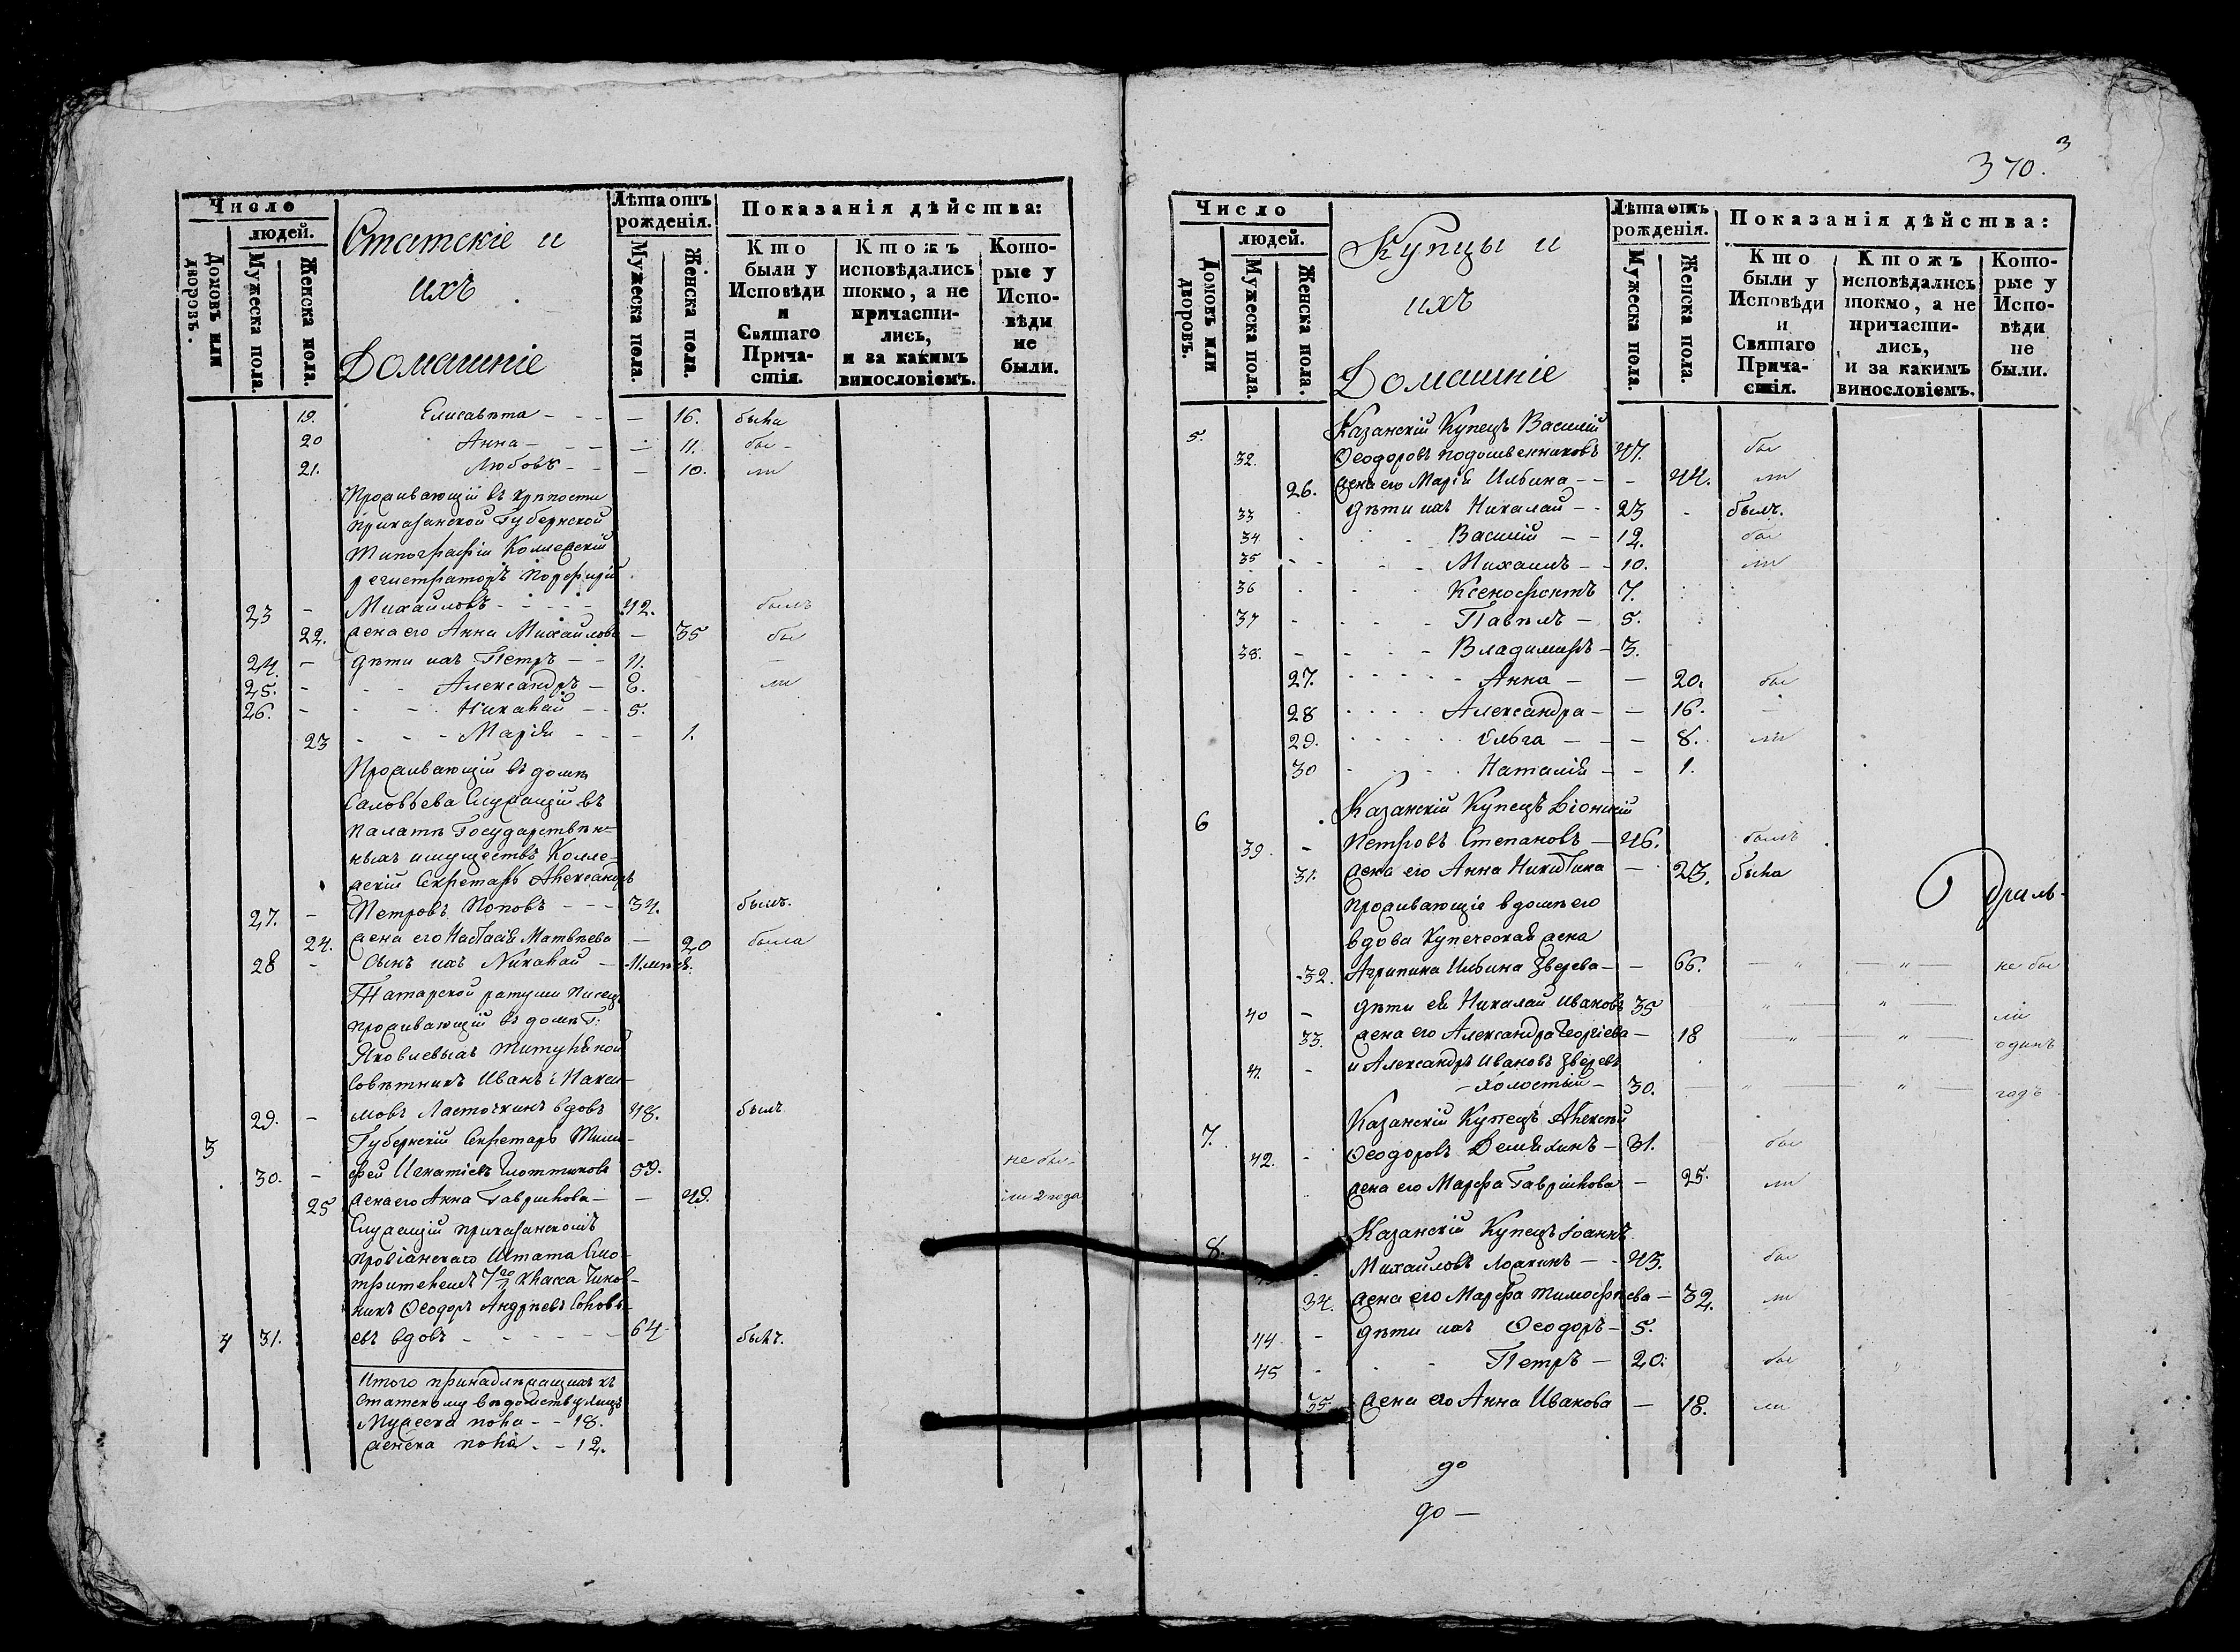 Число
людей.
Домовъ или дворовъ.
Мужеска пола.
Женска пола.
Статскіе и
ихъ
Домашніе
Лѣта отъ рожденія.
Мужеска пола.
Женска пола.
Показанія дѣйства:
Кто были у Исповѣди и Святаго Прича-стія.
Ктожъ исповѣдались токмо, а не причасти-лись, и за какимъ винословіемъ.
Кото-рые у Испо-вѣди не были.
19. Елисавета - - - — 16. была
20 Анна - - - — 11. бы-
21. Любовь - - — 10. ли
Проживающій въ крѣпости
при казанской Губернской
Типографіи Коллежскій
регистраторъ Порфирій
23 - Михайловъ - - - - 42. былъ
22. жена его Анна Михайлова — 35 бы
24. - дѣти ихъ Петръ - - 11. —
25. - - - Александръ - 8. ли
26. - - - Николай - - 5.
23 - - - Марія - - — 1.
Проживающій въ домѣ
Саловьева Служащій въ
Палатѣ Государствен-
ныхъ имуществъ Колле-
жскій Секретарь Александръ
27. - Петровъ Поповъ - - - 34. былъ.
24. жена его Настасія Матвѣева — 20 была
28 - Сынъ ихъ Николай - 11. мѣсяц.
Татарской ратуши писецъ
проживающій въ домѣ Г:
Яковлевыхъ титулярной
Совѣтникъ Иванъ Макси-
29. - мовъ Ласточкинъ вдовъ 48. былъ
3 Губернскій Секретарь Тимо-
30. - фей Игнатіевъ 59. не бы-
25 жена его Анна Гаврилова - — 49. ли 2 года
Служащій при казанскомъ
провіанскаго Штата Смо-
трителемъ 7го класса Чинов-
никъ Ѳеодоръ Андреевъ Соловь-
4 31. евъ вдовъ - - - - - 64 былъ.
Итого принадлежащихъ къ
статскому вѣдомству лицъ
Мужеска пола - - 18.
женска пола. - 12.
3
370.
Число
людей.
Домовъ или дворовъ.
Мужеска пола.
Женска пола.
Купцы и
ихъ
Домашніе
Лѣта отъ рожденія.
Мужеска пола.
Женска пола.
Показанія дѣйства:
Кто были у Исповѣди и Святаго Прича-стія.
Ктожъ исповѣдались токмо, а не причасти-лись, и за какимъ винословіемъ.
Кото-рые у Испо-вѣди не были.
5. Казанскій Купецъ Василій
32. Ѳеодоровъ Подошвенниковъ 47. бы
26. жена его Марія Ильина - - - 44. ли
33 - дѣти ихъ Николай - - 23 - былъ.
34 - - - Василій - - 12. бы
35 - - - Михаилъ - - 10. ли
36 - - Ксенофонтъ 7.
37 - - - - Павелъ - 5.
38. - - - - Владимиръ - 3.
27. - - - - - Анна - — 20. бы
28 - - - - Александра - — 16. —
29. - - - - - Ольга - - — 8. ли
30 - - - - Наталія - — 1.
6 Казанскій Купецъ Діонисій
39. - Петровъ Степановъ - 46. былъ
31. жена его Анна Никитина — 23. была
Проживающіе в домѣ его
вдова Купеческая жена
32. Агрипина Ильина Зверева - — 66. — " — — " — не бы
40 - дѣти ея Николай Ивановъ 35 — " — — " — ли
33. жена его Александра Георгіева - 18 — " — — " — одинъ
41. - и Александръ Ивановъ Зверевъ
- Холостый - 30. — " — — " — годъ
7. Казанскій Купецъ Алексѣй
42. - Ѳеодоровъ Демяхинъ - 31. бы
жена его Марфа Гаврилова - 25. ли
8. Казанскій Купецъ Іоаннъ
- Михайловъ Ложкинъ - - 43. бы
34. жена его Марфа Тимофѣева - 32. ли
44 - дѣти ихъ Ѳеодоръ - 5.
45 - - - Петръ - 20. бы
35. жена его Анна Иванова — 18. ли
до
до —